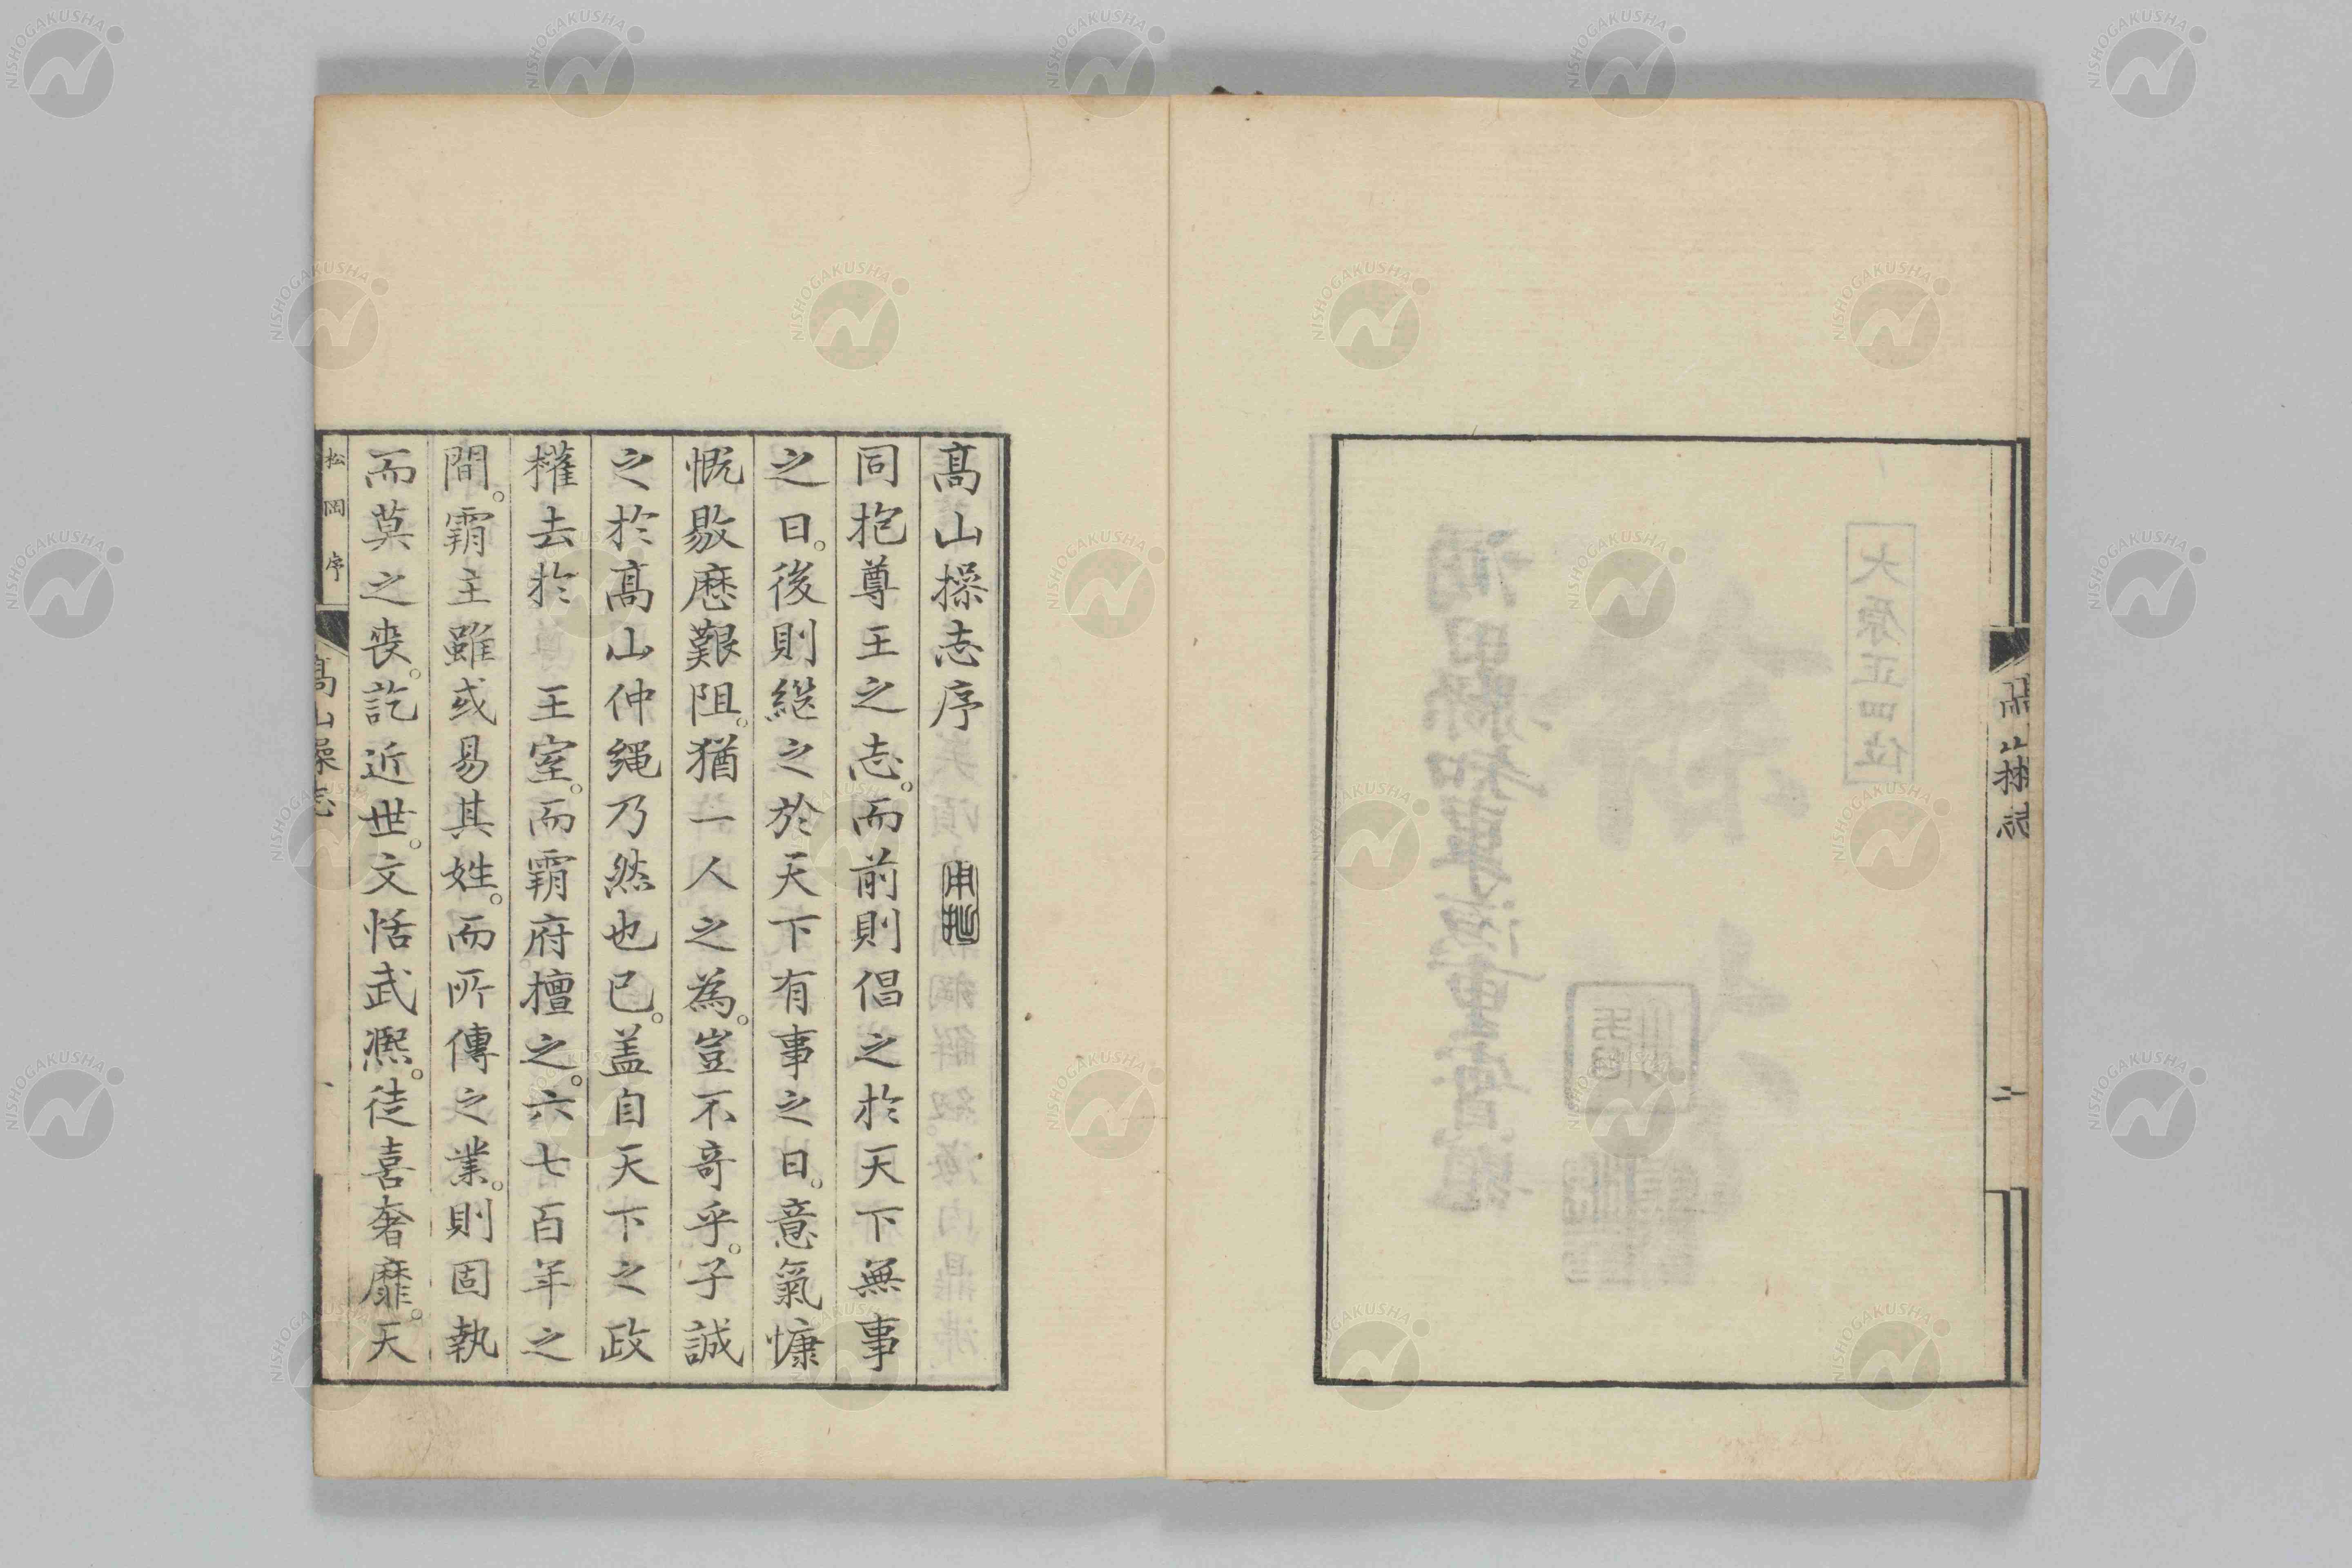 高山操志
二
高山操志序
同抱尊王之志。而前則倡之於天下無事
之日。後則継之於天下有事之日。意氣慷
慨敭歴艱阻。猶一人之為。豈不奇乎。子誠
之於高山仲縄乃然也已。盖自天下之政
権去於 王室。而霸府擅之。六七百年之
間。霸主雖或易其姓。而所傳之業。則固執
而莫之喪。訖近世。文恬武熈。徒喜奢靡。天
松岡序
高山操志
NISHOGAKUSHA